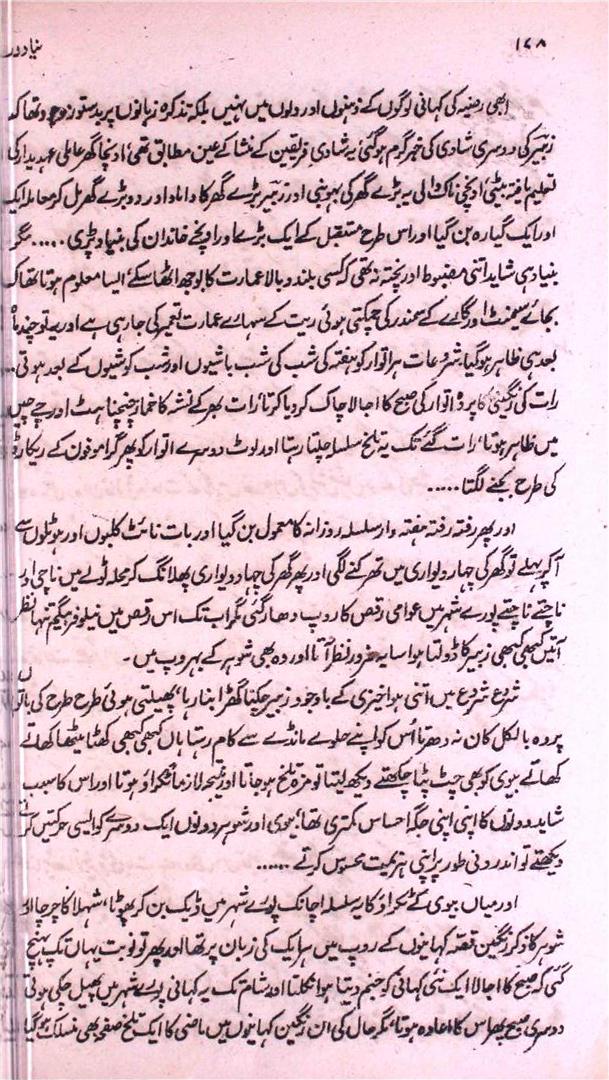 ۱۶۸
نیا دور
ابھی رضیہ کی کہانی لوگوں کے ذہنوں اور دلوں میں نہیں بلکہ تذکرہ زبانوں پر بدستور موجود تھا کہ
زبیر کی دوسری شادی کی خبر گرم ہو گئی یہ شادی فریقین کے منشا کے عین مطابق تھی، اونچا گھر، عاملی عہدیدار کی
تعلیم یافتہ بیٹی، اونچی ناک والی یہ بڑے گھر کی بہو بنی اور زبیر بڑے گھر کا داماد اور دو بڑے گھر مل کر معاملہ ایک
اور ایک گیارہ بن گیا اور اس طرح مستقبل کے ایک بڑے اور اونچے خاندان کی بنیاد پڑی ..... مگر
بنیاد ہی شاید اتنی مضبوط اور پختہ نہ تھی کہ کسی بلند و بالا عمارت کا بوجھ اٹھا سکے، ایسا معلوم ہوتا تھا کہ
بجائے سیمنٹ اور گارے کے سمندر کی چمکتی ہوئی ریت کے سہارے عمارت تعمیر کی جا رہی ہے اور یہ تو چند ماہ
بعد ہی ظاہر ہو گیا، شروعات ہر اتوار کو ہفتہ کی شب کی شب باشیوں اور شب کوشیوں کے بعد ہوتی ..
رات کی رنگینی کا پردہ اتوار کی صبح کا اجالا چاک کر دیا کرتا، رات بھر کے نشہ کا خمار چڑچڑاہٹ اور چے چیں
میں ظاہر ہوتا، رات گئے تک یہ تلخ سلسلہ چلتا رہتا اور لوٹ دوسرے اتوار کو پھر گراموفون کے ریکارڈ
کی طرح بجنے لگتا .....
اور پھر رفتہ رفتہ ہفتہ وار سلسلہ روزانہ کا معمول بن گیا اور بات نائٹ کلبوں اور ہوٹلوں سے
آ کر پہلے تو گھر کی چہار دیواری میں تھرکنے لگی اور پھر گھر کی چہار دیواری پھلانگ کر محلہ ٹولے میں ناچی اور
ناچتے ناچتے پورے شہر میں عوامی رقص کا روپ دھار گئی مگر اب تک اس رقص میں نیلوفر بیگم تنہا نظر
آتیں کبھی کبھی زبیر کا ڈولتا ہوا سایہ ضرور نظر آتا اور وہ بھی شوہر کے بہروپ میں۔
شروع شروع میں اتنی ہوا خیزی کے باوجود زبیر چکنا گھڑا بنا رہا، پھیلتی ہوئی طرح طرح کی باتوں
پر وہ بالکل کان نہ دھرتا اُس کو اپنے حلوے مانڈے سے کام رہتا ہاں کبھی کبھی کھٹا میٹھا کھاتے
کھاتے بیوی کو بھی چٹ پٹا چکھتے دیکھ لیتا تو مزہ تلخ ہو جاتا اور نتیجہ لازماً ٹکراؤ ہوتا اور اس کا سبب
شاید دونوں کا اپنی اپنی جگہ احساس کمتری تھا، بیوی اور شوہر دونوں ایک دوسرے کو ایسی حرکتیں کرتے
دیکھتے تو اندرونی طور پر اپنی ہزیمت محسوس کرتے ......
اور میاں بیوی کے ٹکراؤ کا یہ سلسلہ اچانک پورے شہر میں ڈیک بن کر پھوٹا، شہلا کا چرچا اور
شوہر کا ذکر رنگین قصہ کہانیوں کے روپ میں ہر ایک کی زبان پر تھا اور پھر تو نوبت یہاں تک پہنچ
گئی کہ صبح کا اجالا ایک نئی کہانی کو جنم دیتا ہوا نکلتا اور شام تک یہ کہانی پورے شہر میں پھیل چکی ہوتی
دوسری صبح پھر اس کا اعادہ ہوتا، مگر حال کی ان رنگین کہانیوں میں ماضی کا ایک تلخ صفحہ بھی منسلک ہو گیا